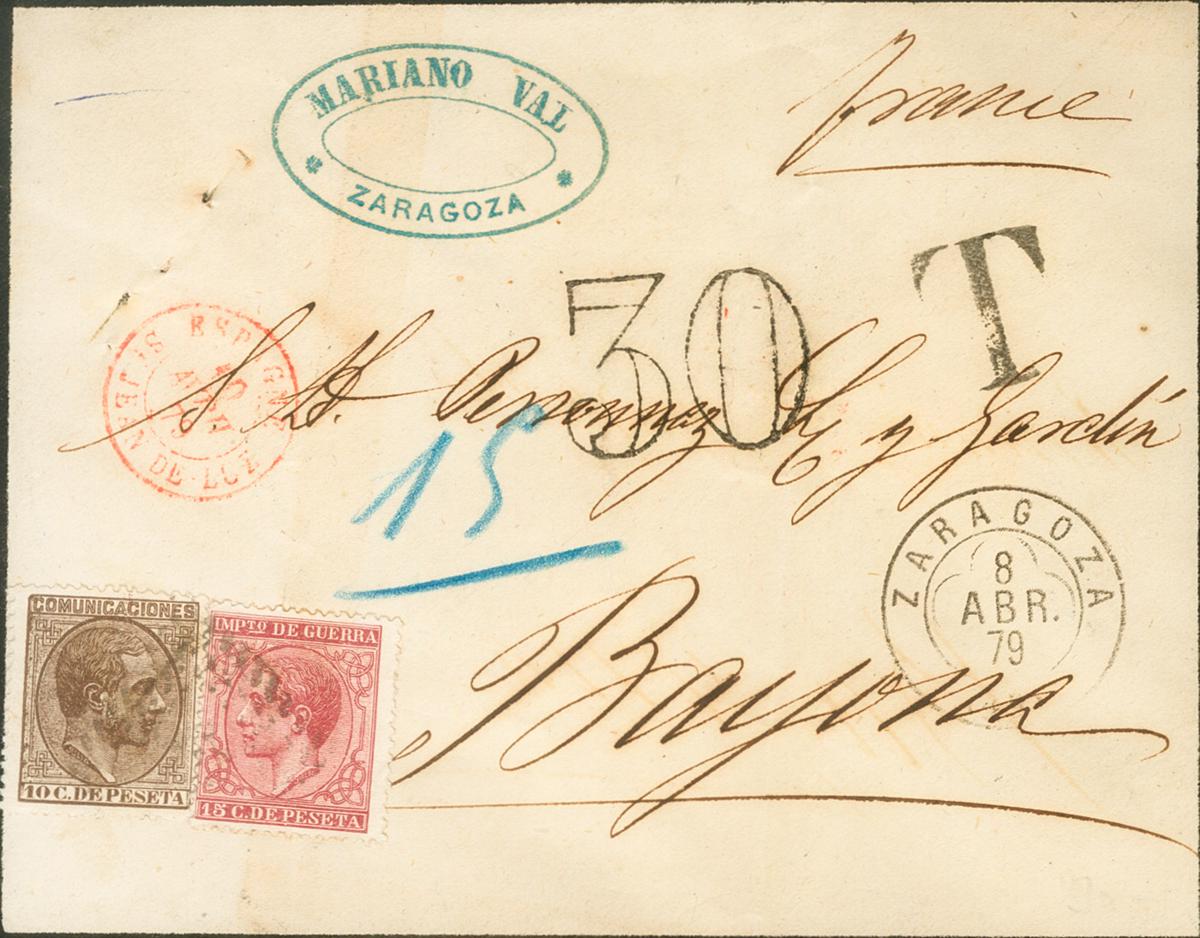 MARIANO VAL
ZARAGOZA
france
30
T
ST JEAN-DE-LUZ
ESPAGNE
AVRIL
79
y Jardin
15
ZARAGOZA
8
ABR.
79
Bayona
COMUNICACIONES
10 C. DE PESETA
IMPTO DE GUERRA
15 C. DE PESETA